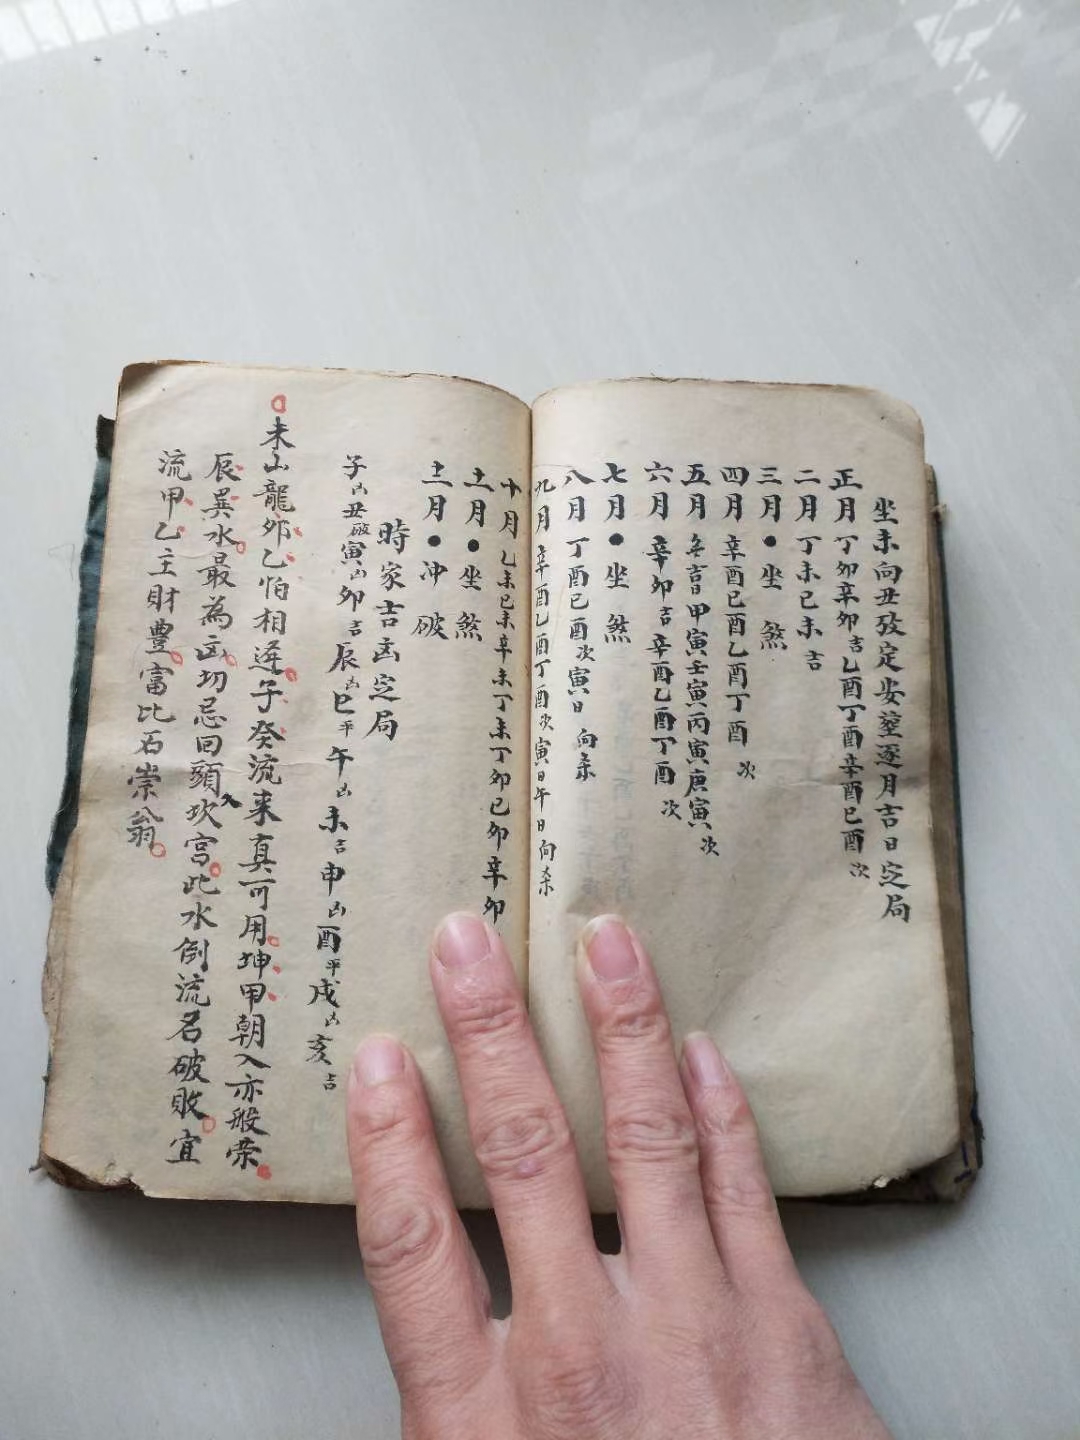 坐未向丑攷定安葬逐月吉日定局
正月丁卯辛卯吉乙酉丁酉辛酉巳酉次
二月丁未巳未吉
三月●坐煞
四月辛酉巳酉乙酉丁酉次
五月冬吉日甲寅壬寅丙寅庚寅次
六月辛卯吉辛酉乙酉丁酉次
七月●坐煞
八月丁酉巳酉次寅日向杀
九月辛酉乙酉丁酉次寅日午日向杀
十月乙未巳未辛未丁未丁卯巳卯辛卯
十一月●坐煞
十二月●冲破
時家吉凶定局
子凶丑破寅凶卯吉辰凶巳平午凶未吉申凶酉平戌凶亥吉
未山龍卯乙怕相逢子癸流来真可用坤甲朝入亦般荣
辰巽水最為凶切忌回頭入坎宫此水倒流名破敗宜
流甲乙主財豊富比石崇翁